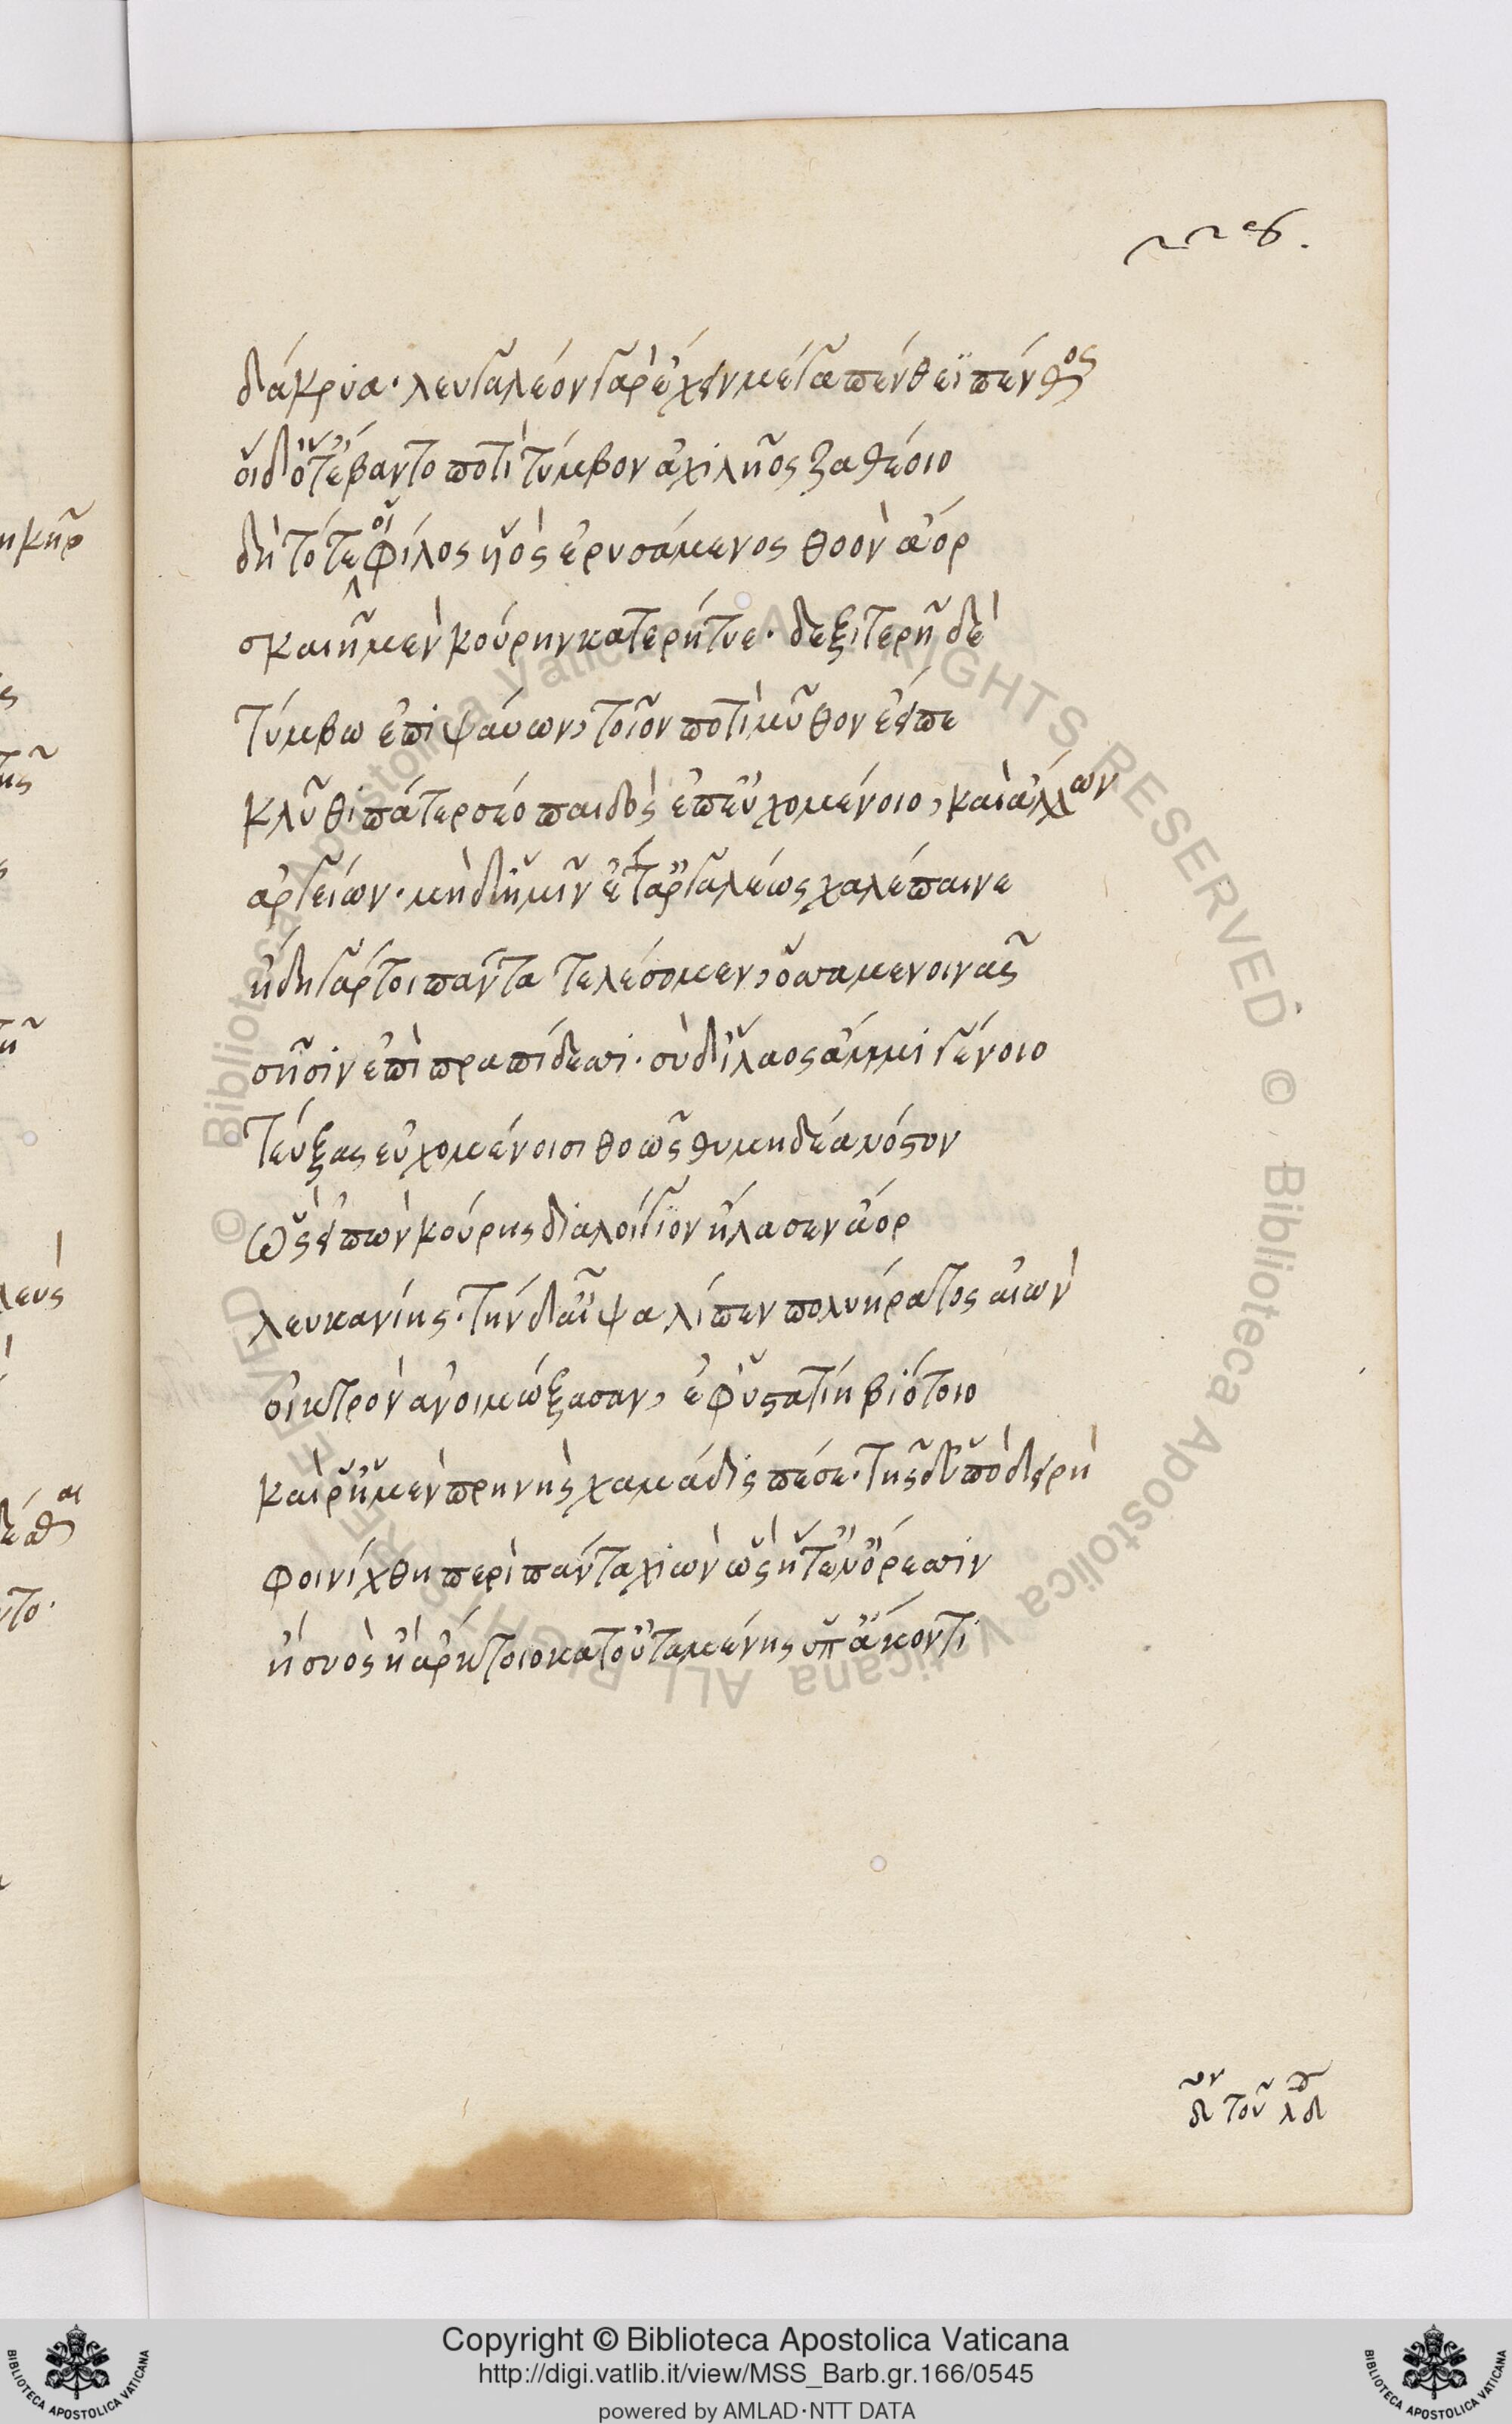 226.
δάκρυα· λευγαλέον γὰρ ἔχεν μέγα πένθεϊ πένθος
οἱ δ' ὅτ' ἔβαν τοποτὶ τύμβον ἀχιλῆος ζαθέοιο
δὴ τότε οἱ φίλος ὑὸς ἐρυσάμενος θοὸν ἄορ
σκαιῆ μὲν κούρην κατερήτυε· δεξιτερῆ δὲ
τύμβω ἐπιψαύων, τοῖον ποτὶ μῦθον ἔειπε
κλῦθι πάτερ σέο παιδὸς ἐπευχομένοιο, καὶ ἄλλων
ἀργείων· μὴ δ' ἡμῖν ἔτ' ἀργαλέως χαλέπαινε
ἤδη γάρ τοι πάντα τελέσομεν, ὅσσα μενοινᾶς
σῆσιν ἐπὶ πραπίδεσσι· σὺ δ' ἵλαος ἄμμι γένοιο
τεύξας εὐχομένοισι θοῶς θυμηδέα νόστον
ὣς εἰπὼν κούρης διὰ λοίγιον ἤλασεν ἄορ
λευκανίης· τὴν δ' αἶψα λίπεν πολυήρατος αἰὼν
οἰκτρὸν ἀνοιμώξασαν, ἐφ' ὑστατίη βιότοιο
καί ῥ' ἡ μὲν πρηνὴς χαμάδις πέσε· τῆς δ' ὑπὸ δειρὴ
φοινίχθη περὶ πάντα χιὼν ὣς ἥτ' ἐν ὄρεσσιν
ἢ συὸς ἢ ἄρκτοιο κατουταμένης ὑπ' ἄκοντι
τοῦ
Copyright © Biblioteca Apostolica Vaticana
http://digi.vatlib.it/view/MSS_Barb.gr.166/0545
powered by AMLAD·NTT DATA
BIBLIOTECA APOSTOLICA VATICANA
BIBLIOTECA APOSTOLICA VATICANA
© Biblioteca Apostolica Vaticana ALL RIGHTS RESERVED © Biblioteca Apostolica Vaticana ALL RIGHTS RESERVED